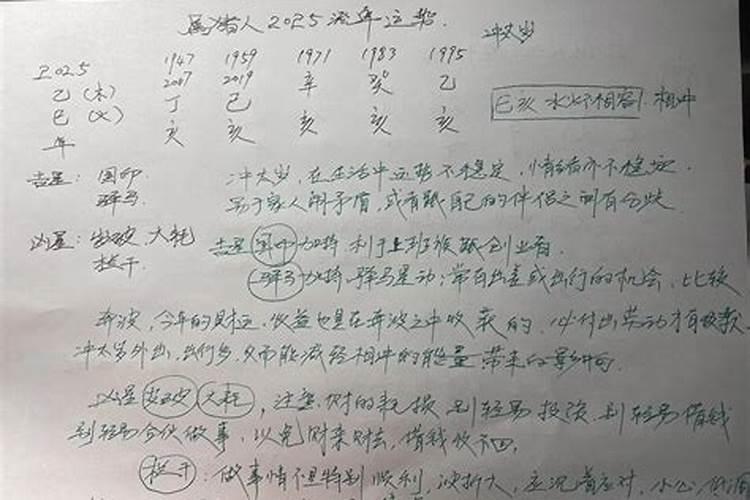 属猪人2025流年运势. 冲太岁
1947 1959 1971 1983 1995
2025 2007 2019 辛 癸 乙
乙(木) 丁 己
巳(火) 亥 亥 亥 亥 亥 巳亥 水火不相容. 相冲
年
吉星: 国印 冲太岁, 在生活中运势不稳定, 情绪亦不稳定.
驿马 易于家人闹矛盾, 或者跟自己的伴侣之间有分歧
凶星: 岁破 大耗 吉星国印加持 利于上班族跟创业者.
栏干. 驿马加持, 驿马星动; 常有出差或出行的机会, 比较
奔波, 今年的财运, 收益也是在奔波之中收获的, 必付出劳动才有收获
冲太岁外出, 出行多, 反而能减轻相冲的能量带来的影响.
凶星岁破 大耗, 注意财的耗损 别轻易投资. 别轻易借钱
别轻易合伙做事, 以免财来财去, 借钱收不回,
栏干: 做事情不是特别顺利, 波折大, 应沉着应对, 小心